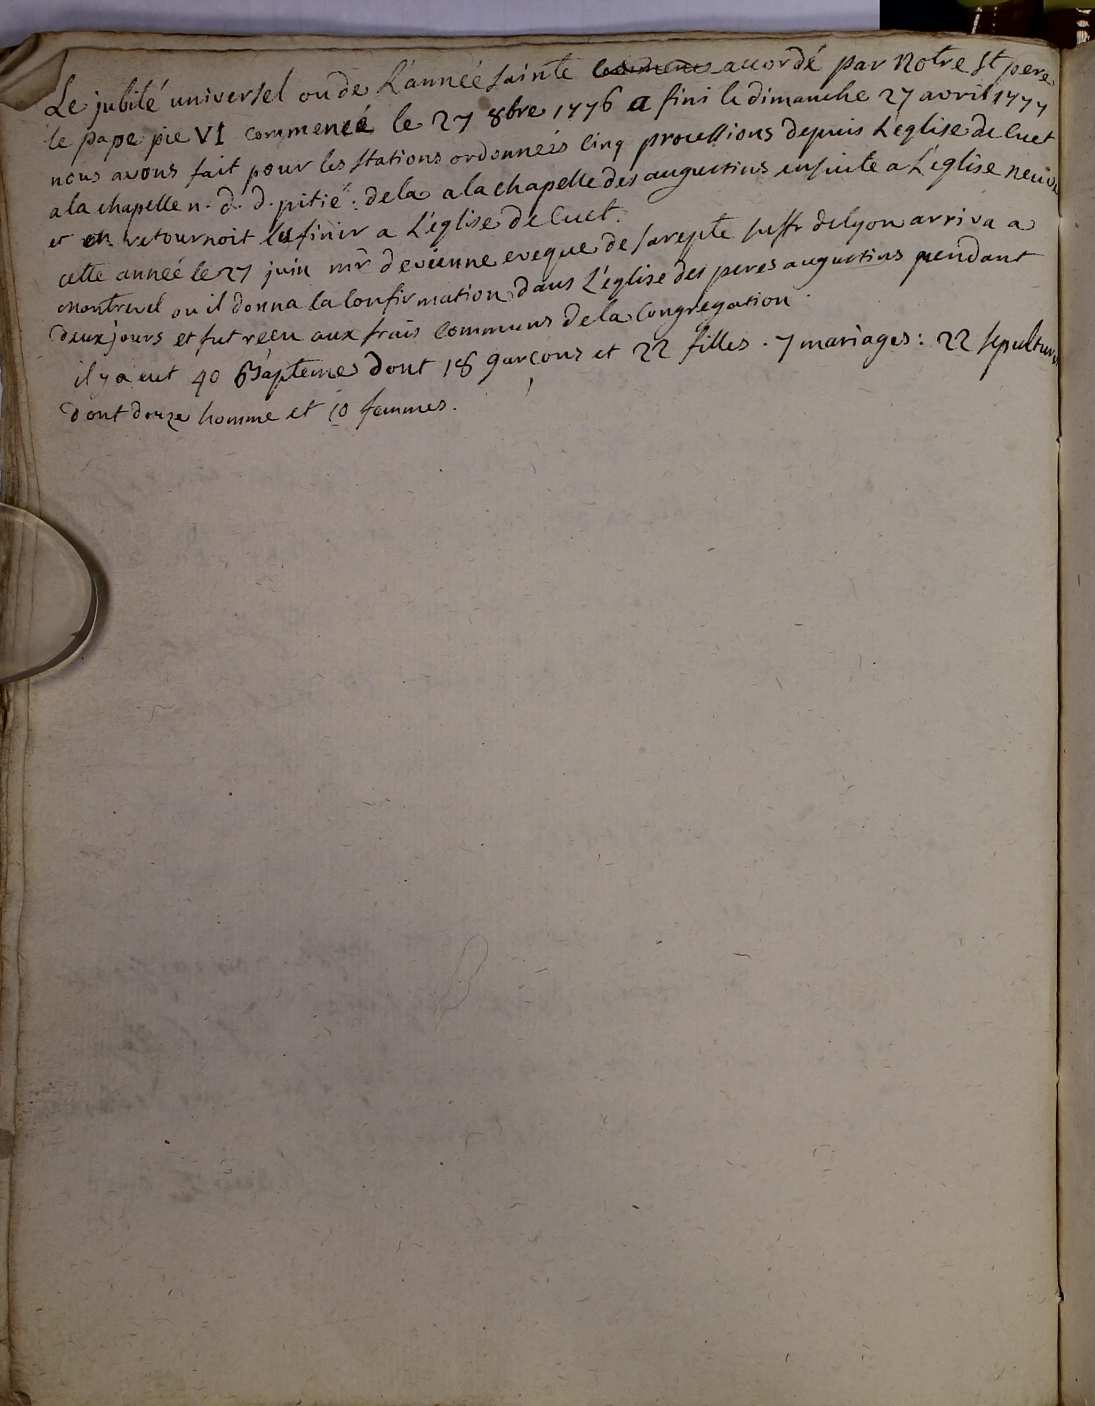 Le jubilé universel ou de L'année sainte accordé par Notre st pere
le pape pie VI commencé le 27 8bre 1776 a fini le dimanche 27 avril 1777
nous avons fait pour les stations ordonnées cinq processions depuis L'eglise de Cuet
a la chapelle n. d. d. pitié : dela a la chapelle des augustins ensuite a L'eglise neuve
et on retournoit finir a L'église de Cuet.
cette année le 27 juin mr devienne eveque de sarepte suffr de lyon arriva a
montrevel ou il donna la Confirmation dans L'église des peres augustins pendant
deux jours et fut reçu aux frais communs de la Congregation.
il y a eut 40 Baptemes dont 18 garçons et 22 filles . 7 mariages : 22 sepultures
dont douze homme et 10 femmes.